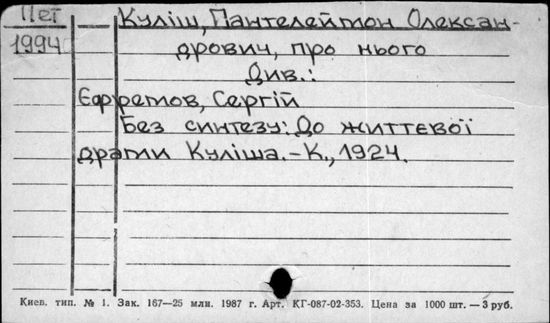 Пеї Куліш, Пантелеймон Олексан-
1994 дрович, про нього
Див.:
Єфремов, Сергій
Без синтезу: До життєвої
драми Куліша. -К., 1924.
Киев. тип. № 1. Зак. 167—25 млн. 1987 г. Арт. КГ-087-02-353. Цена за 1000 шт. — 3 руб.